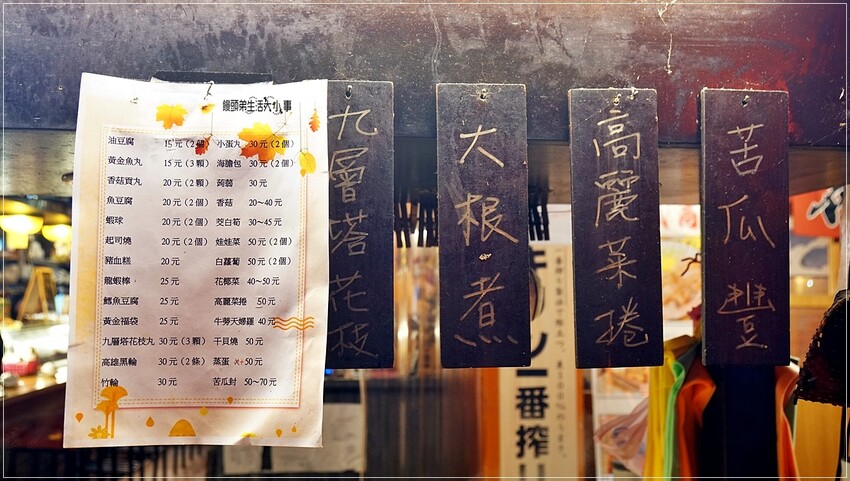 饅頭弟生活大小事
油豆腐 15元(2個) 小蛋丸 30元(2個)
黃金魚丸 15元(3顆) 海膽包 30元(2個)
香菇貢丸 20元(2顆) 蒟蒻 30元
魚豆腐 20元(2個) 香菇 20~40元
蝦球 20元(2個) 茭白筍 30~45元
起司燒 20元(2個) 娃娃菜 50元(2個)
豬血糕 20元 白蘿蔔 50元(2個)
龍蝦棒 25元 花椰菜 40~50元
鱈魚豆腐 25元 高麗菜捲 50元
黃金福袋 25元 牛蒡天婦羅 40元
九層塔花枝丸 30元(3顆) 干貝燒 50元
高雄黑輪 30元(2條) 蒸蛋 50元
竹輪 30元 苦瓜封 50~70元
九層塔花枝
大根煮
高麗菜捲
苦瓜
一番搾り